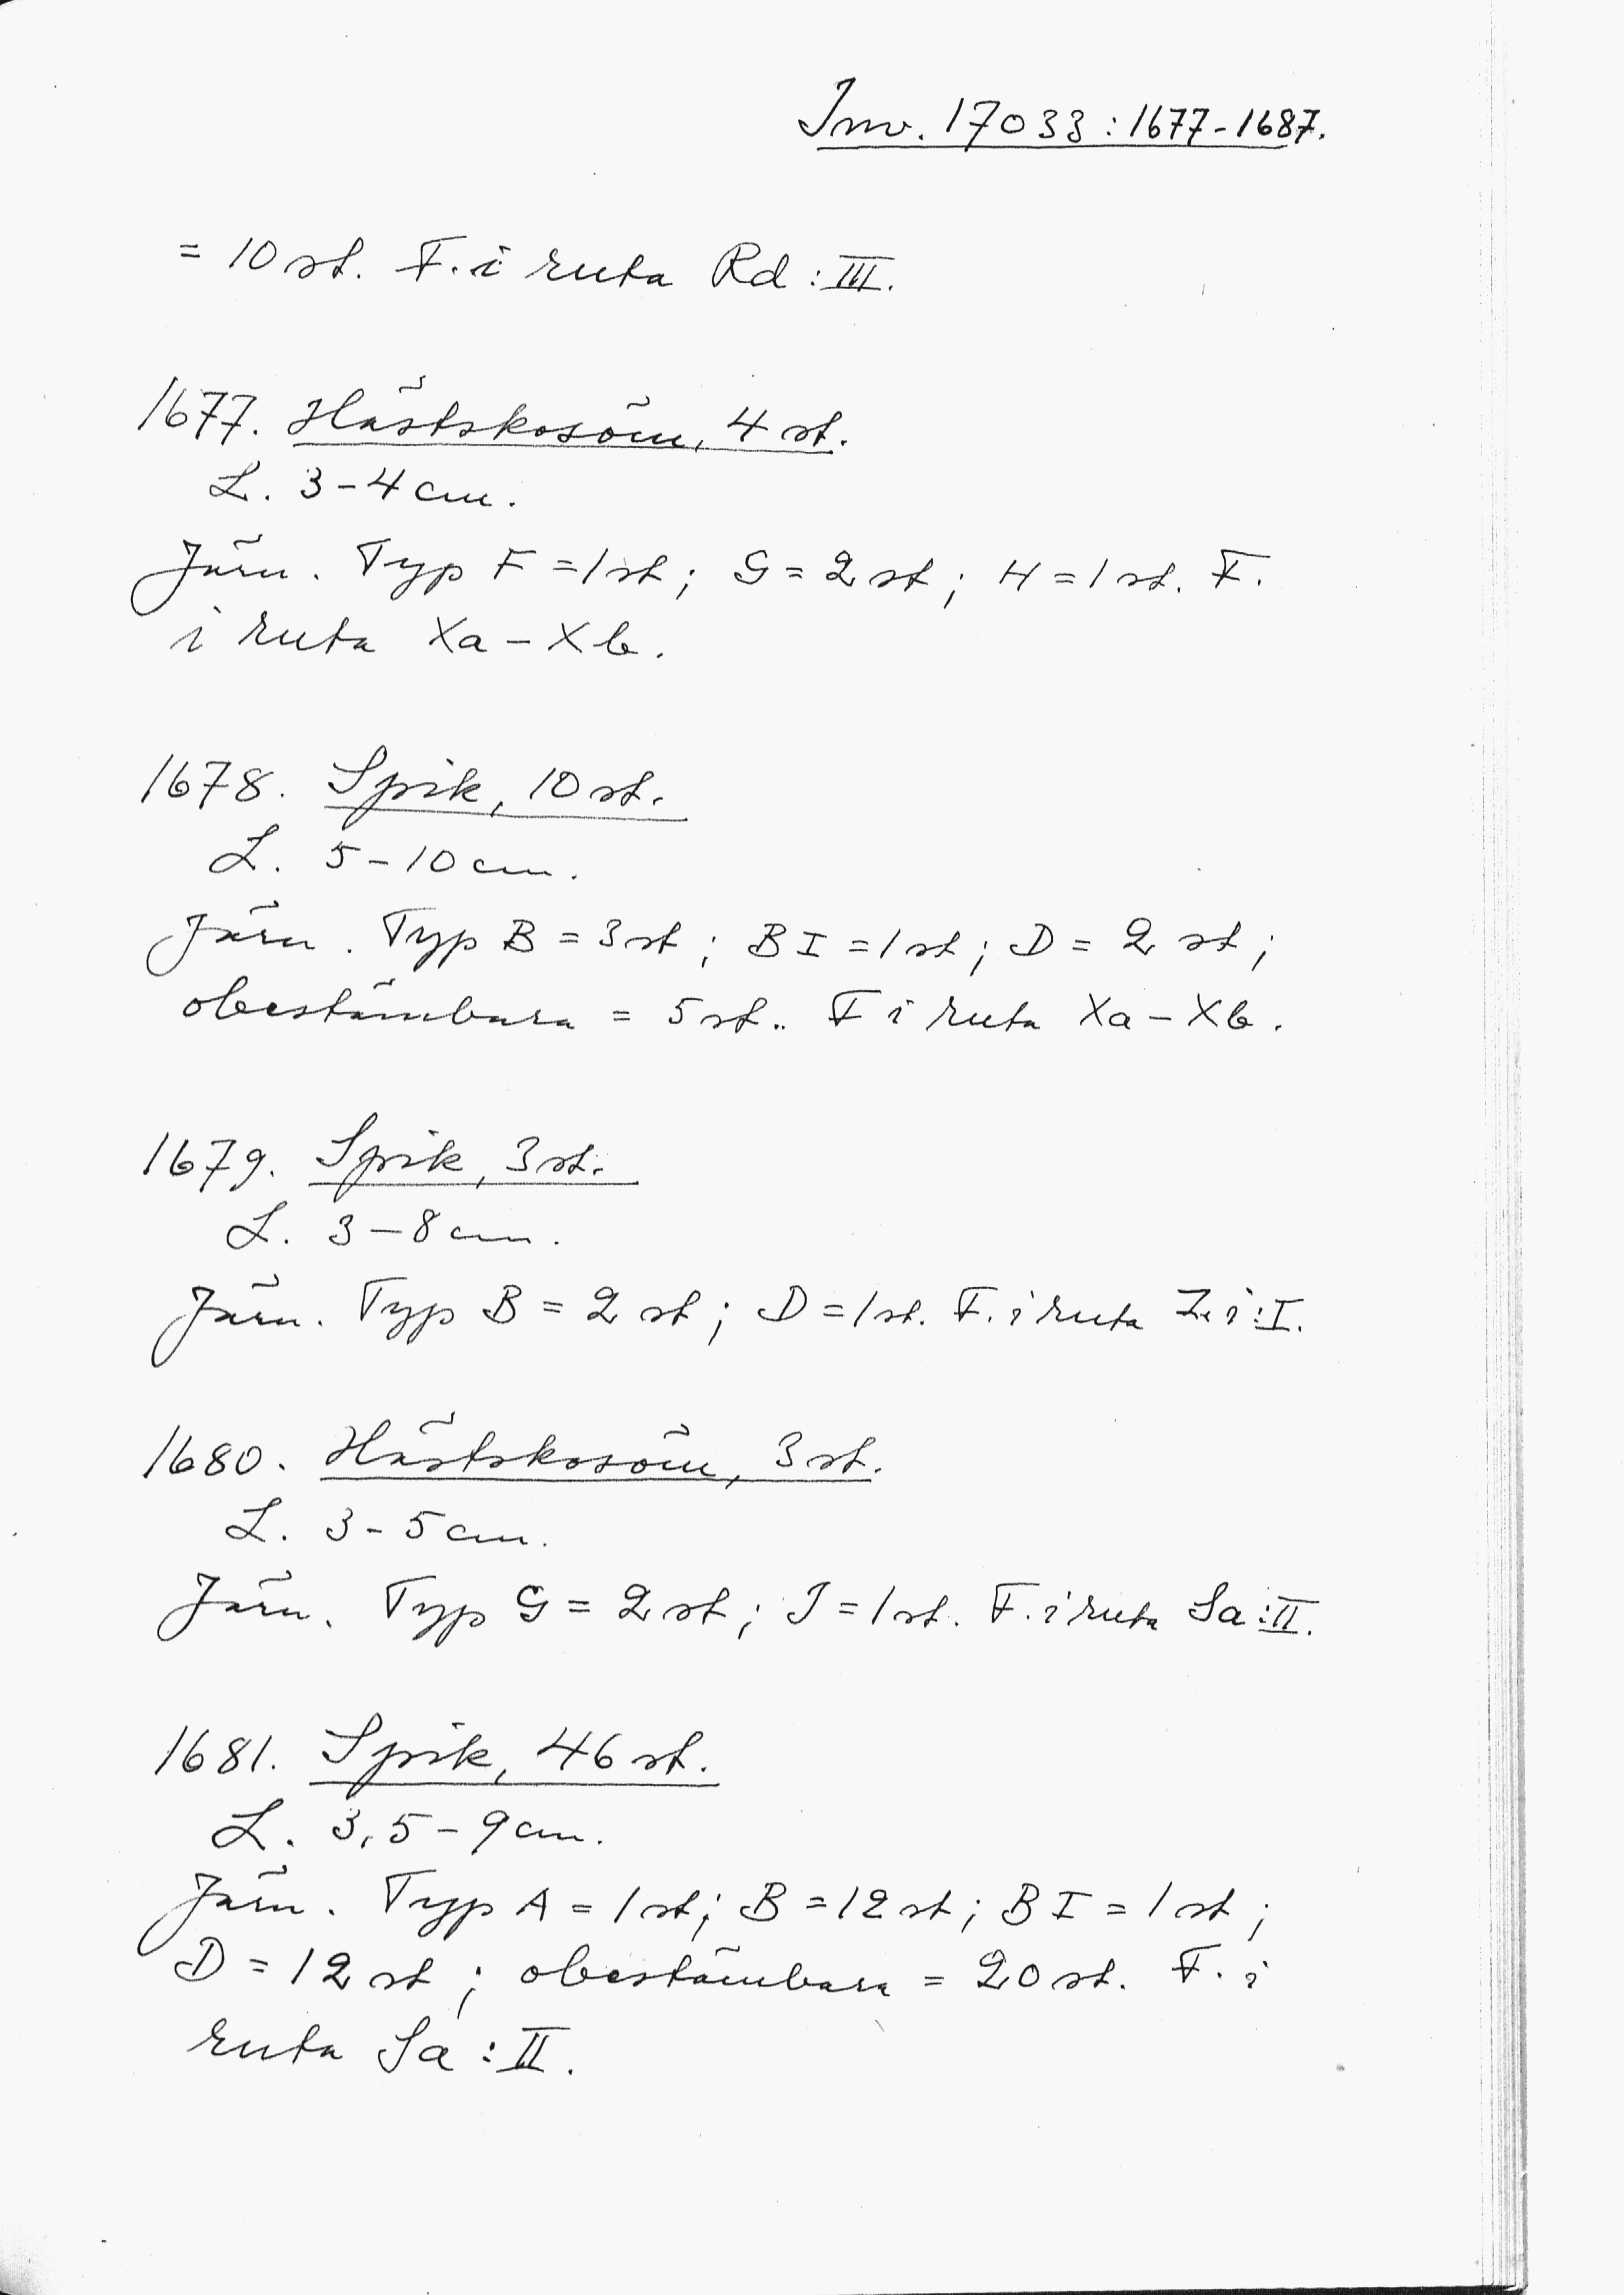 Inv. 17033:1677-1687.
= 10 st. F. i ruta Rd:III.
1677. Hästskosöm, 4 st.
L. 3-4 cm.
Järn. Typ F = 1 st; G = 2 st; H = 1 st. F.
i ruta Xa - Xb.
1678. Spik, 10 st.
L. 5-10 cm.
Järn. Typ B = 3 st; B I = 1 st; D = 2 st;
obestämbara = 5 st.. F i ruta Xa - Xb.
1679. Spik, 3 st.
L. 3-8 cm.
Järn. Typ B = 2 st; D = 1 st. F. i ruta Zi:I.
1680. Hästskosöm, 3 st.
L. 3-5 cm.
Järn. Typ G = 2 st; I = 1 st. F. i ruta Sa:II.
1681. Spik, 46 st.
L. 3,5-9 cm.
Järn. Typ A = 1 st; B = 12 st; B I = 1 st;
D = 12 st; obestämbara = 20 st. F. i
ruta Sa:II.